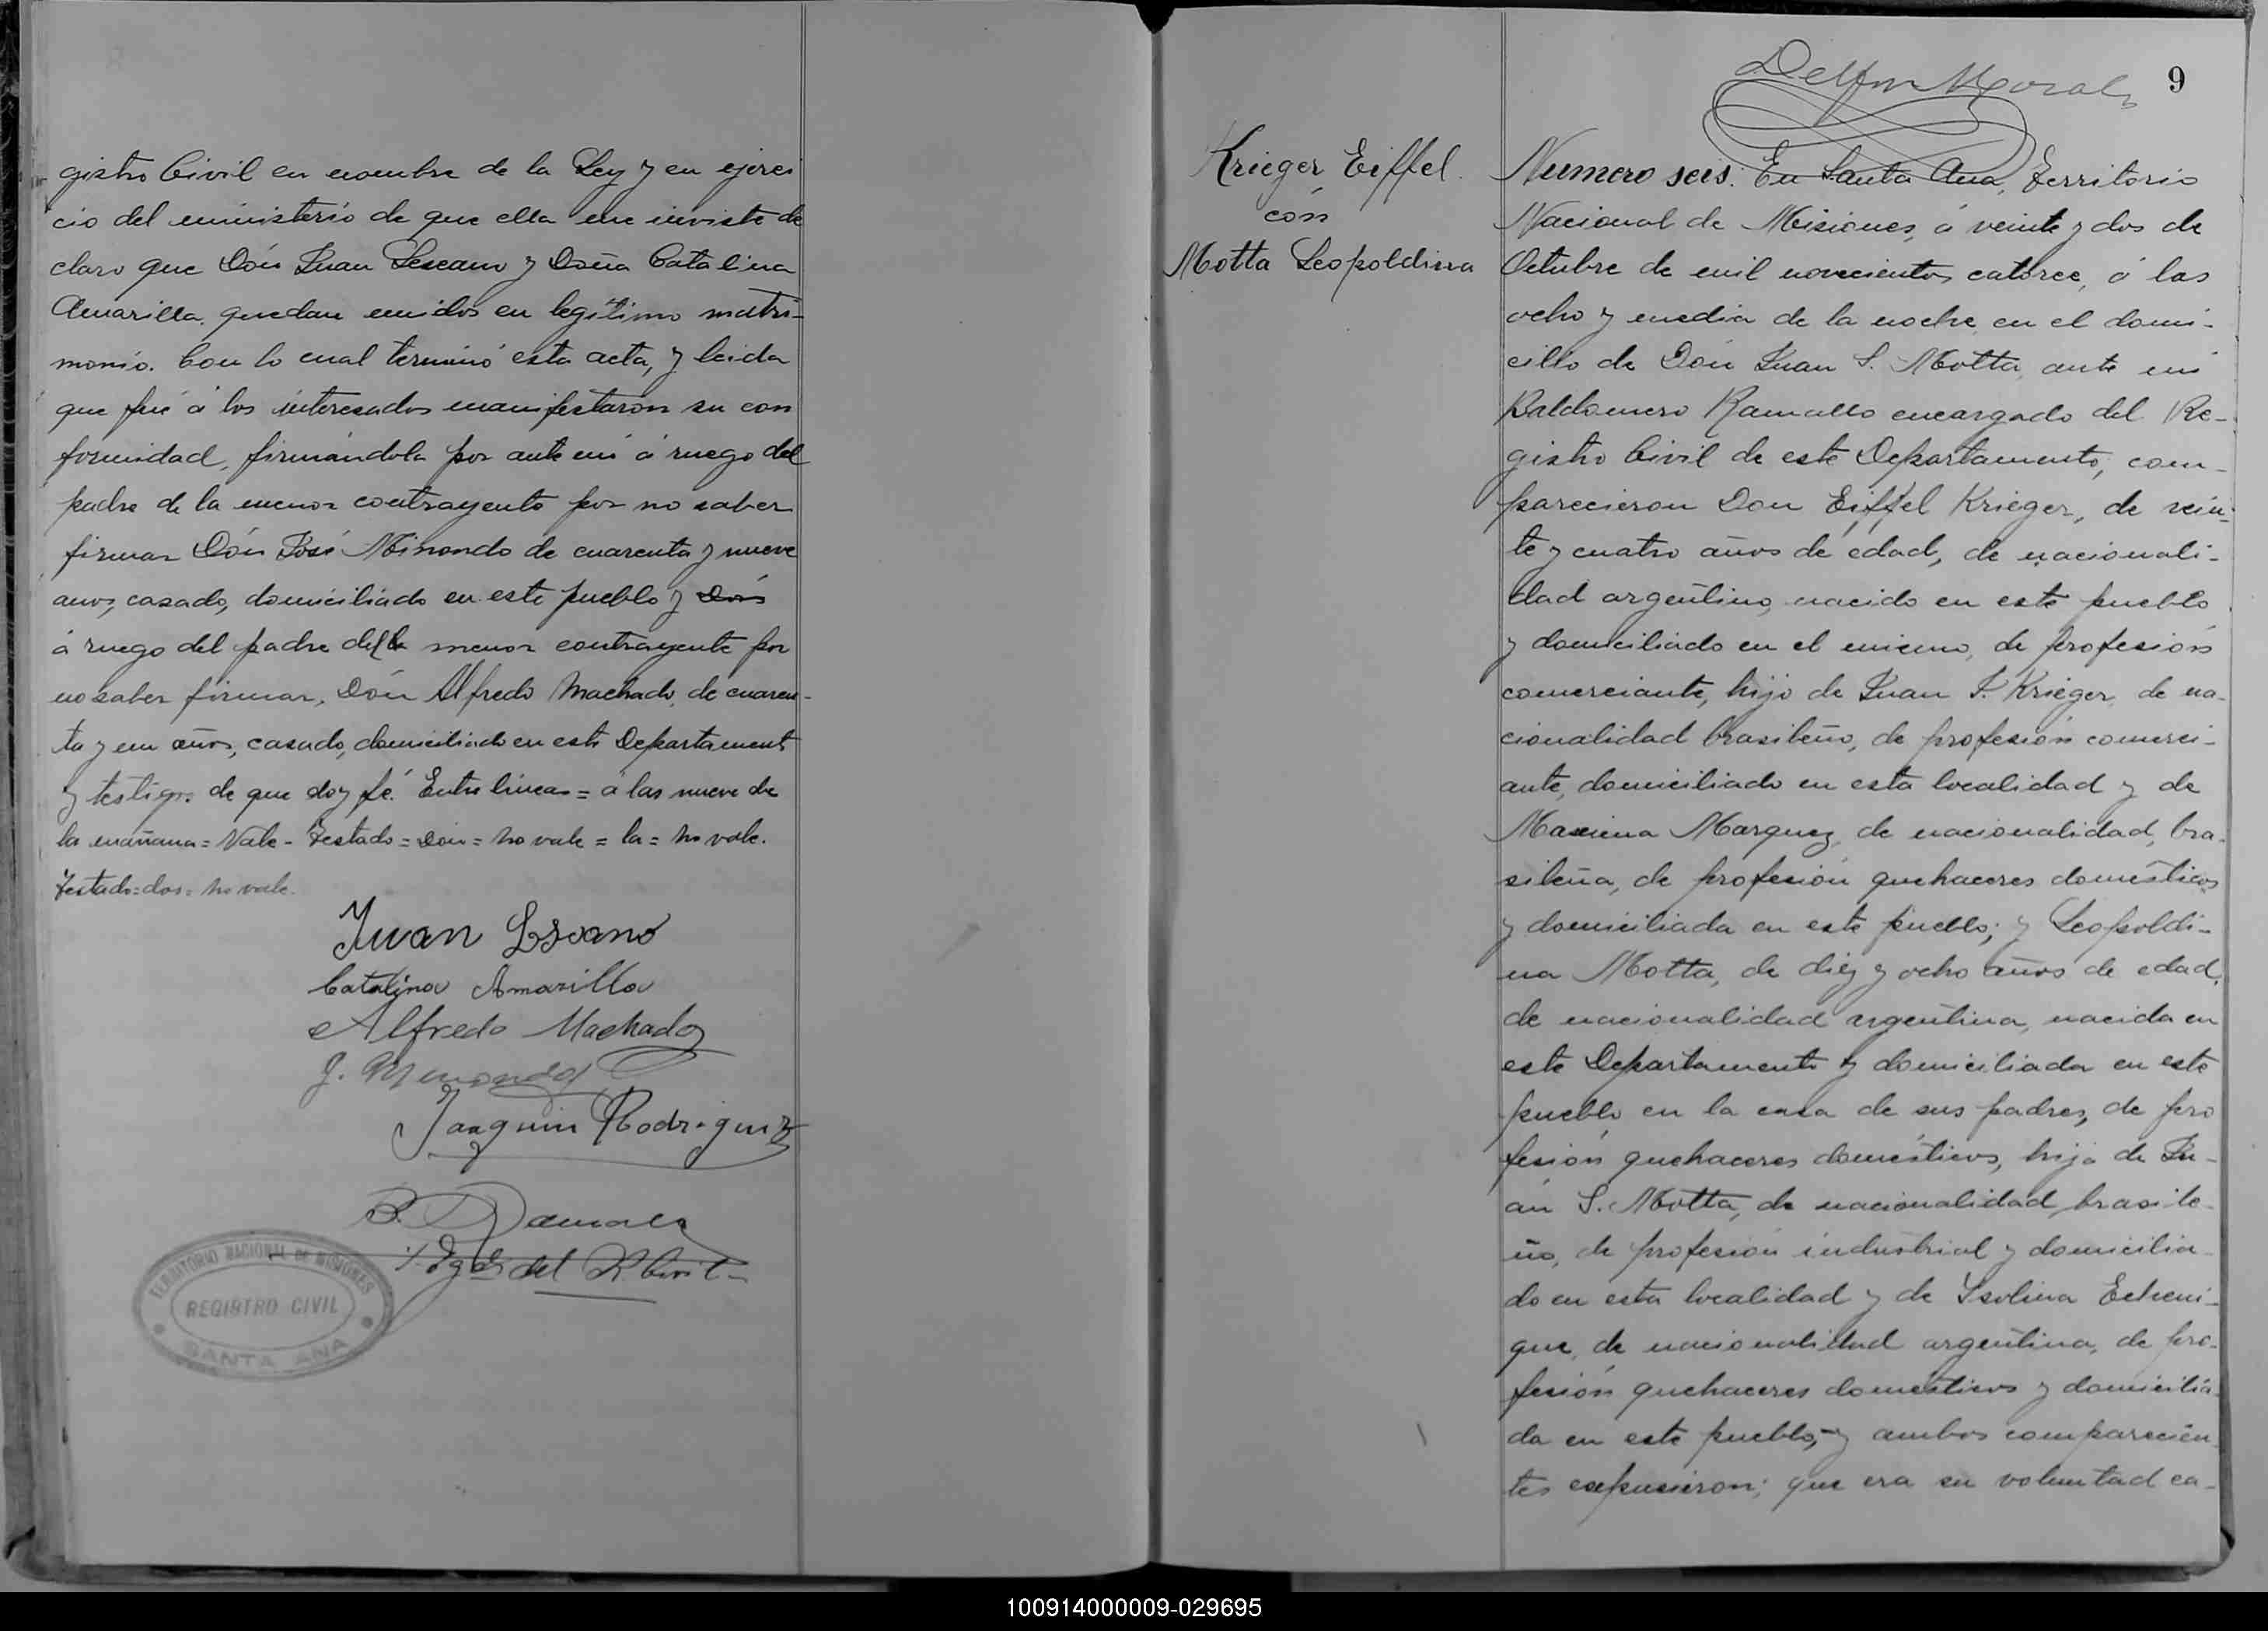 gistro Civil en nombre de la Ley y en ejerci
cio del ministerio de que ella me inviste de
claro que Dón Juan Lescano y Doña Catalina
Amarilla, quedan unidos en legítimo matri-
monio. Con lo cual terminó esta acta, y leida
que fué á los interesados manifestaron su con
formidad, firmándola por ante mi á ruego del
padre de la menor contrayente por no saber
firmar Dón José Minondo de cuarenta y nueve
anos, casado, domiciliado en este pueblo y Dón
á ruego del padre del menor contrayente por
no saber firmar, Dón Alfredo Machado, de cuaren-
ta y un años, casado, domiciliado en este Departament
y testigo. de que doy fé. Entre lineas = a las nueve de
la mañana = Vale - Testado = Don = no vale = la = no vale.
Testado = dos = no vale.
Juan Lescano
Catalina Amarilla
Alfredo Machado
J. Minondo
Joaquin Rodriguez
B. Ramallo
del R. Civil
TERRITORIO NACIONAL DE MISIONES
REGISTRO CIVIL
SANTA ANA
Delfin Morales
9
Krieger Eiffel.
cón
Motta Leopoldina
Numero seis: En Santa Ana, Territorio
Nacional de Misiones, á veinte y dos de
Octubre de mil novecientos catorce, á las
ocho y media de la noche en el domi-
cilio de Dón Juan S. Motta, ante mi
Baldomero Ramallo encargado del Re-
gistro Civil de este Departamento, com-
parecieron Don Eiffel Krieger, de vein-
te y cuatro años de edad, de nacionali-
dad argentino, nacido en este pueblo
y domiciliado en el mismo, de profesión
comerciante, hijo de Juan F. Krieger, de na-
cionalidad brasileño, de profesión comerci-
ante, domiciliado en esta localidad y de
Maxima Marquez, de nacionalidad, bra-
sileña, de profesión quehaceres domésticos
y domiciliada en este pueblo; y Leopoldi-
na Motta, de diéz y ocho años de edad,
de nacionalidad argentina, nacida en
este Departamento y domiciliada en este
pueblo en la casa de sus padres, de pro
fesión quehaceres domésticos, hija de Ju-
an S. Motta, de nacionalidad brasile-
ño, de profesión industrial y domicilia-
do en esta localidad y de Ysolina Echeni-
que, de nacionalidad argentina, de pro-
fesión quehaceres domésticos y domicilia-
da en este pueblo, y ambos comparecien
tes expusieron; que era su voluntad ca-
100914000009-029695